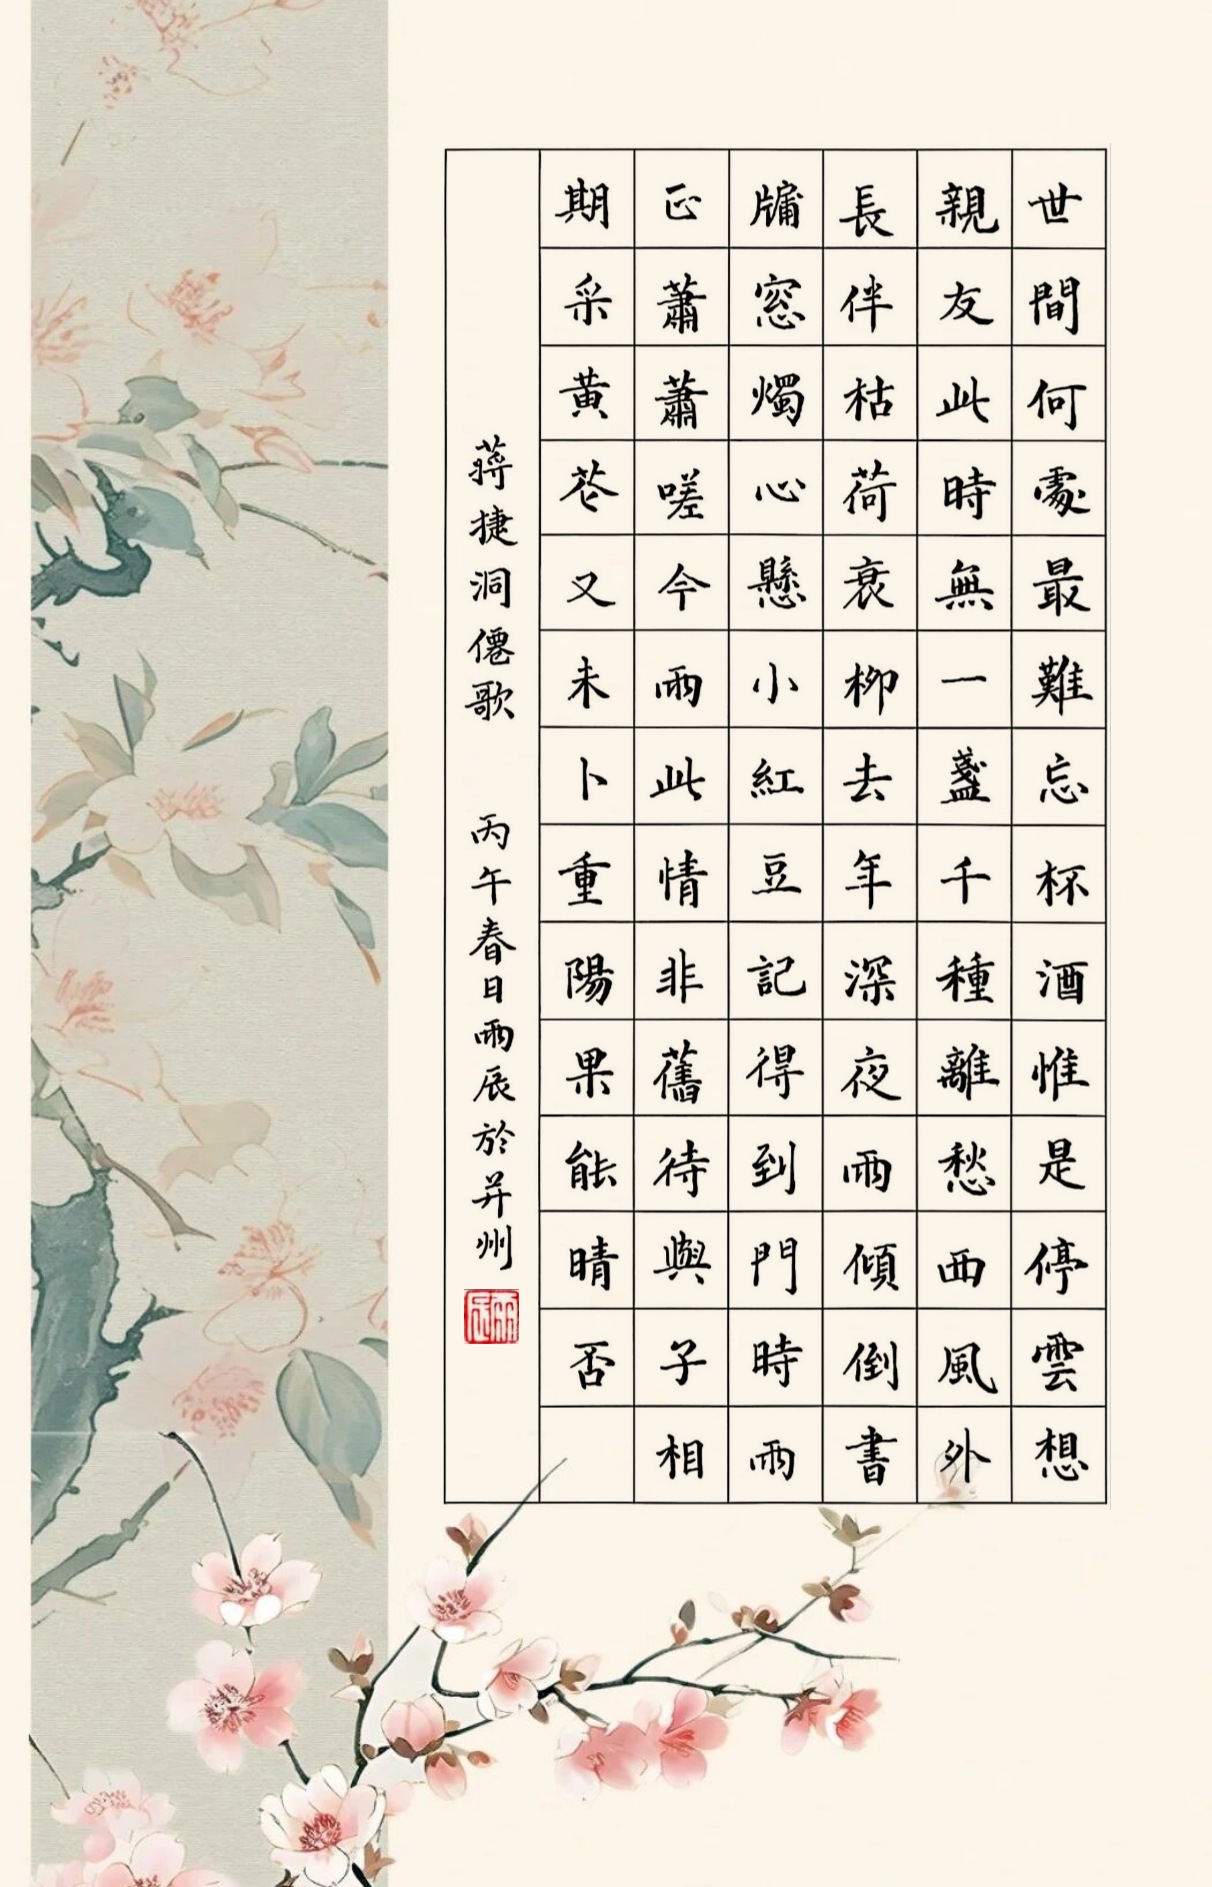 世間何處最難忘杯酒惟是停雲想
親友此時無一盞千種離愁西風外
長伴枯荷衰柳去年深夜雨傾倒書
牖窓燭心懸小紅豆記得到門時雨
正蕭蕭嗟今雨此情非舊待與子相
期采黃花又未卜重陽果能晴否
蔣捷洞僊歌 丙午春日雨辰於并州
雨辰